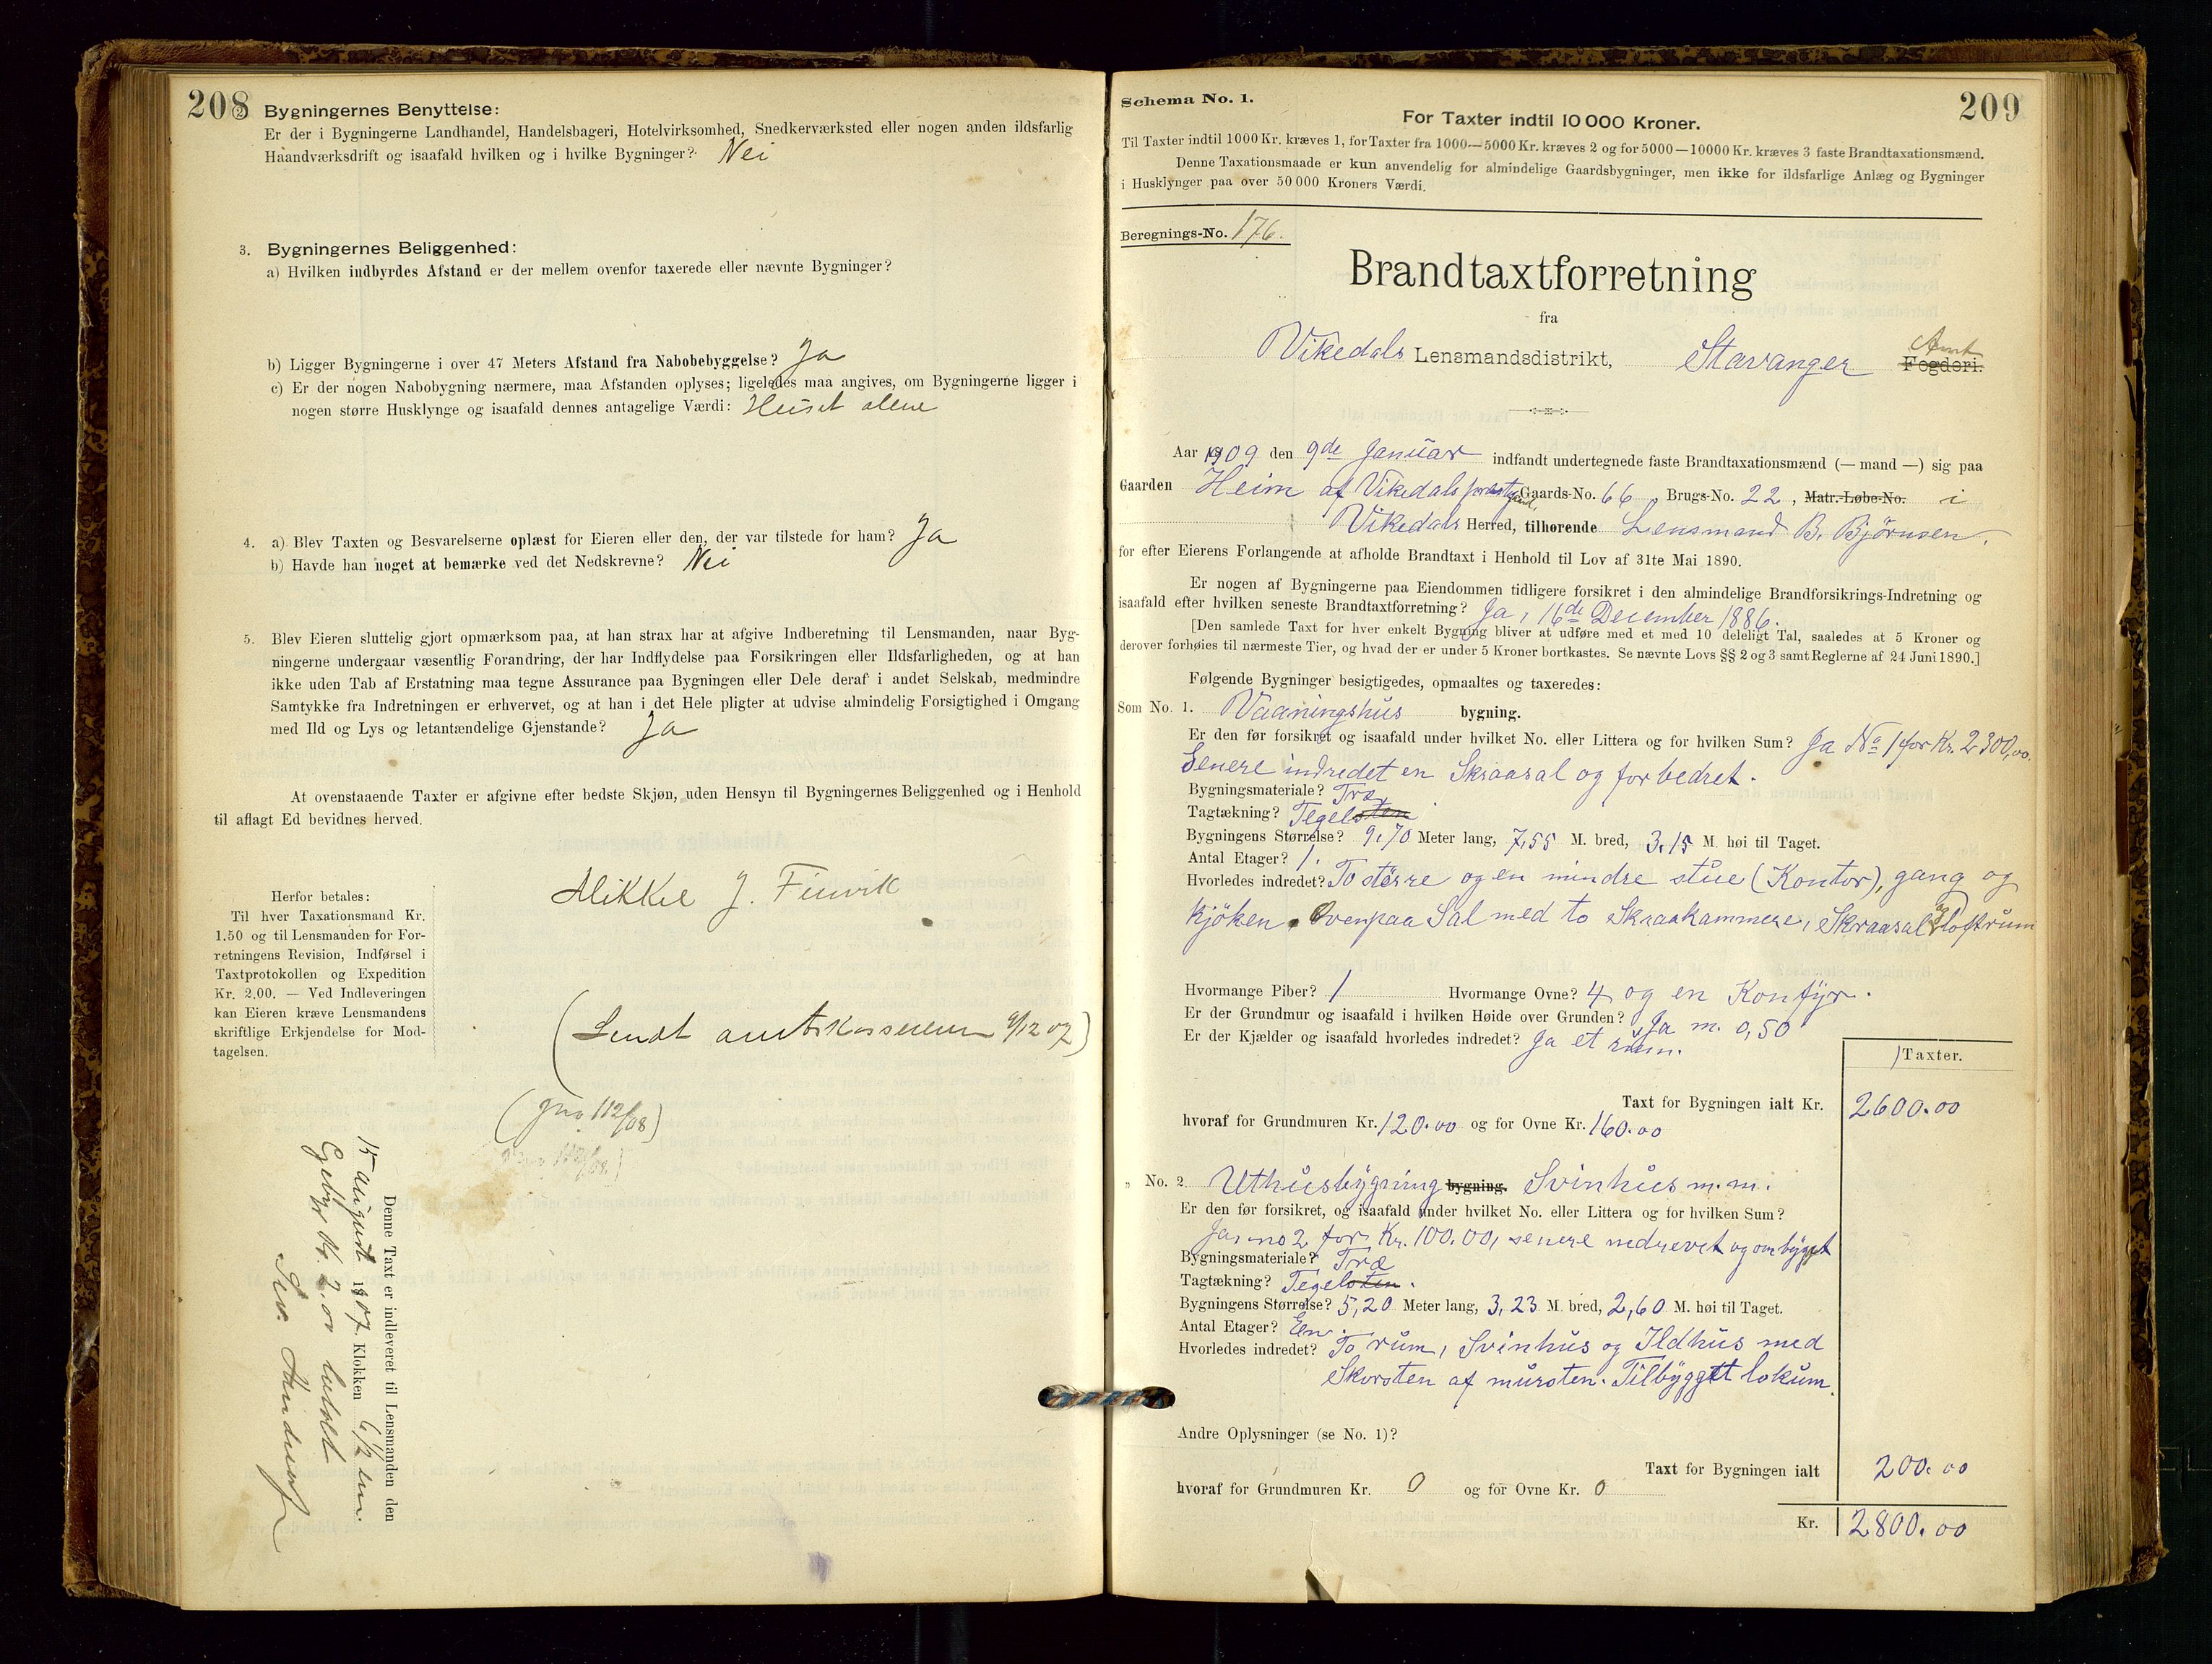 208
2. Bygningernes Benyttelse:
Er der i Bygningerne Landhandel, Handelsbageri, Hotelvirksomhed, Snedkerværksted eller nogen anden ildsfarlig
Haandværksdrift og isaafald hvilken og i hvilke Bygninger? Nei
3. Bygningernes Beliggenhed:
a) Hvilken indbyrdes Afstand er der mellem ovenfor taxerede eller nævnte Bygninger?
b) Ligger Bygningerne i over 47 Meters Afstand fra Nabobebyggelse? Ja
c) Er der nogen Nabobygning nærmere, maa Afstanden oplyses; ligeledes maa angives, om Bygningerne ligger i
nogen større Husklynge og isaafald dennes antagelige Værdi: Huset alene
4. a) Blev Taxten og Besvarelserne oplæst for Eieren eller den, der var tilstede for ham? Ja
b) Havde han noget at bemærke ved det Nedskrevne? Nei
5. Blev Eieren sluttelig gjort opmærksom paa, at han strax har at afgive Indberetning til Lensmanden, naar Byg-
ningerne undergaar væsentlig Forandring, der har Indflydelse paa Forsikringen eller Ildsfarligheden, og at han
ikke uden Tab af Erstatning maa tegne Assurance paa Bygningen eller Dele deraf i andet Selskab, medmindre
Samtykke fra Indretningen er erhvervet, og at han i det Hele pligter at udvise almindelig Forsigtighed i Omgang
med Ild og Lys og letantændelige Gjenstande? Ja
At ovenstaaende Taxter er afgivne efter bedste Skjøn, uden Hensyn til Bygningernes Beliggenhed og i Henhold
til aflagt Ed bevidnes herved.
Mikkel J. Finvik
Herfor betales:
Til hver Taxationsmand Kr.
1.50 og til Lensmanden for For-
retningens Revision, Indførsel i
Taxtprotokollen og Expedition
Kr. 2.00. — Ved Indleveringen
kan Eieren kræve Lensmandens
skriftlige Erkjendelse for Mod-
tagelsen.
(Sendt amtskassereren 9/12 07)
(Jno 112/08)
Denne Taxt er indleveret til Lensmanden den
15 august 1907 Klokken 6 1/2 em.
Gebyr Kr. 2.00 betalt
209
Schema No. 1.
For Taxter indtil 10 000 Kroner.
Til Taxter indtil 1000 Kr. kræves 1, for Taxter fra 1000—5000 Kr. kræves 2 og for 5000—10000 Kr. kræves 3 faste Brandtaxationsmænd.
Denne Taxationsmaade er kun anvendelig for almindelige Gaardsbygninger, men ikke for ildsfarlige Anlæg og Bygninger
i Husklynger paa over 50 000 Kroners Værdi.
Beregnings-No. 176.
Brandtaxtforretning
fra
Vikedals Lensmandsdistrikt, Stavanger Amt Fogderi.
Aar 1909 den 9de Januar indfandt undertegnede faste Brandtaxationsmænd (— mand —) sig paa
Gaarden Heim af Vikedals prestegaard, Gaards-No. 66, Brugs-No. 22, Matr.-Løbe-No. i
Vikedals Herred, tilhørende Lensmand B. Bjørnsen,
for efter Eierens Forlangende at afholde Brandtaxt i Henhold til Lov af 31te Mai 1890.
Er nogen af Bygningerne paa Eiendommen tidligere forsikret i den almindelige Brandforsikrings-Indretning og
isaafald efter hvilken seneste Brandtaxtforretning? Ja, 16de December 1886.
[Den samlede Taxt for hver enkelt Bygning bliver at udføre med et med 10 deleligt Tal, saaledes at 5 Kroner og
derover forhøies til nærmeste Tier, og hvad der er under 5 Kroner bortkastes. Se nævnte Lovs §§ 2 og 3 samt Reglerne af 24 Juni 1890.]
Følgende Bygninger besigtigedes, opmaaltes og taxeredes:
Som No. 1. Vaaningshus bygning.
Er den før forsikret og isaafald under hvilket No. eller Littera og for hvilken Sum? Ja No 1 for Kr. 2300,00.
Senere indredet en Skraasal og forbedret.
Bygningsmateriale? Træ
Tagtækning? Tegelsten
Bygningens Størrelse? 9,70 Meter lang, 7,55 M. bred, 3,15 M. høi til Taget.
Antal Etager? 1.
Hvorledes indredet? To større og en mindre stue (Kontor), gang og
Kjøken. Ovenpaa Sal med to Skraakammere, Skraasal og loftrum
Hvormange Piber? 1 Hvormange Ovne? 4 og en Konfyr.
Er der Grundmur og isaafald i hvilken Høide over Grunden? Ja m. 0,50
Er der Kjælder og isaafald hvorledes indredet? Ja et rum.
Taxter.
Taxt for Bygningen ialt Kr. 2600.00
hvoraf for Grundmuren Kr. 120.00 og for Ovne Kr. 160.00
„ No. 2. Uthusbygning bygning. Svinhus m.m.
Er den før forsikret, og isaafald under hvilket No. eller Littera og for hvilken Sum?
Ja, no 2 for Kr. 100.00, senere nedrevet og ombygget
Bygningsmateriale? Træ
Tagtækning? Tegelsten.
Bygningens Størrelse? 5,20 Meter lang, 3,23 M. bred, 2,60 M. høi til Taget.
Antal Etager? En.
Hvorledes indredet? To rum, Svinhus og Ildhus med
Skorsten af mursten. Tilbygget lokum.
Andre Oplysninger (se No. 1)?
Taxt for Bygningen ialt 200.00
hvoraf for Grundmuren Kr. 0 og for Ovne Kr. 0
Kr. 2800.00